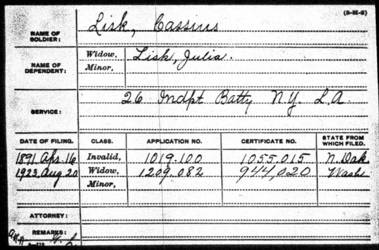 (3-25-2)
NAME OF SOLDIER: Lisk, Cassius
NAME OF DEPENDENT: Widow, Lisk, Julia.
Minor,
SERVICE: 26 Indpt Batty N.Y. L.A.
DATE OF FILING. CLASS. APPLICATION NO. CERTIFICATE NO. STATE FROM WHICH FILED.
1891 Apr. 16 Invalid, 1019.100 1055.015 N. Dak
1923 Aug 20 Widow, 1209.082 944,020 Wash
Minor,
ATTORNEY:
REMARKS: